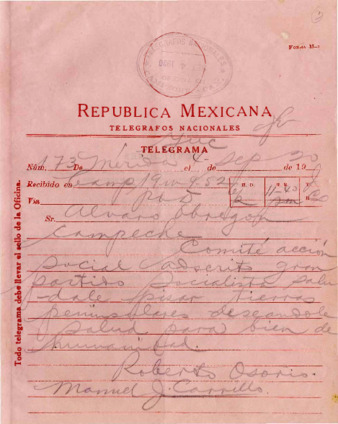 REPUBLICA MEXICANA
TELEGRAFOS NACIONALES
TELEGRAMA
Yuc
Núm. 173 De Mérida el 4 de Sep de 19 20
Recibido en Camp 19 w 9.52
Vía
Sr. Alvaro Obregon
Campeche
Comité acción
social adscrito gran
partido socialista salu
dale pisar tierras
peninsulares deseandole
salud para bien de
humanidad.
Roberto Osorio.
Manuel J. Carrillo.
Todo telegrama debe llevar el sello de la Oficina.